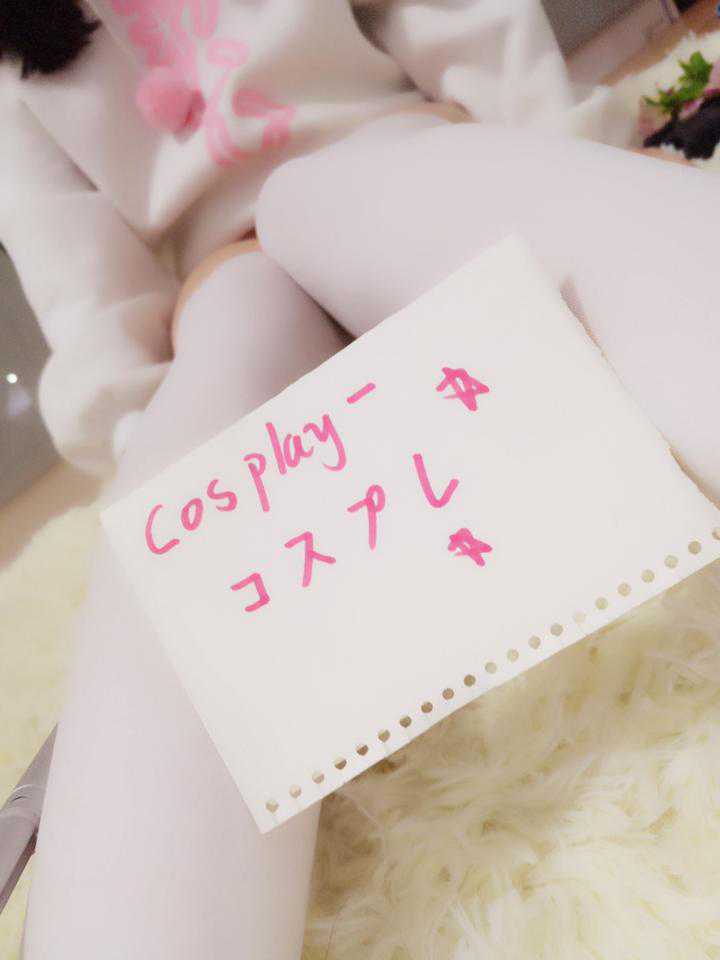 Cosplay- ☆
コスプレ
☆